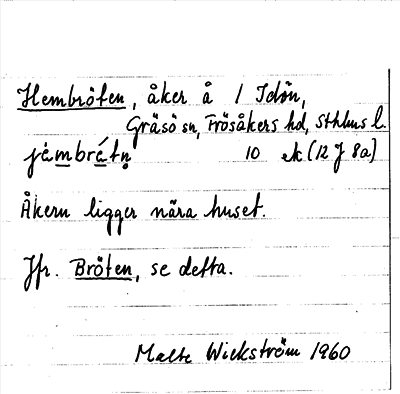 Hembröten, åker å 1 Idön,
Gräsö sn, Frösåkers hd, Sthlms l.
jèmbrátn 10 ek (12 J 8a)
Åkern ligger nära huset.
Jfr. Bröten, se detta.
Malte Wickström 1960